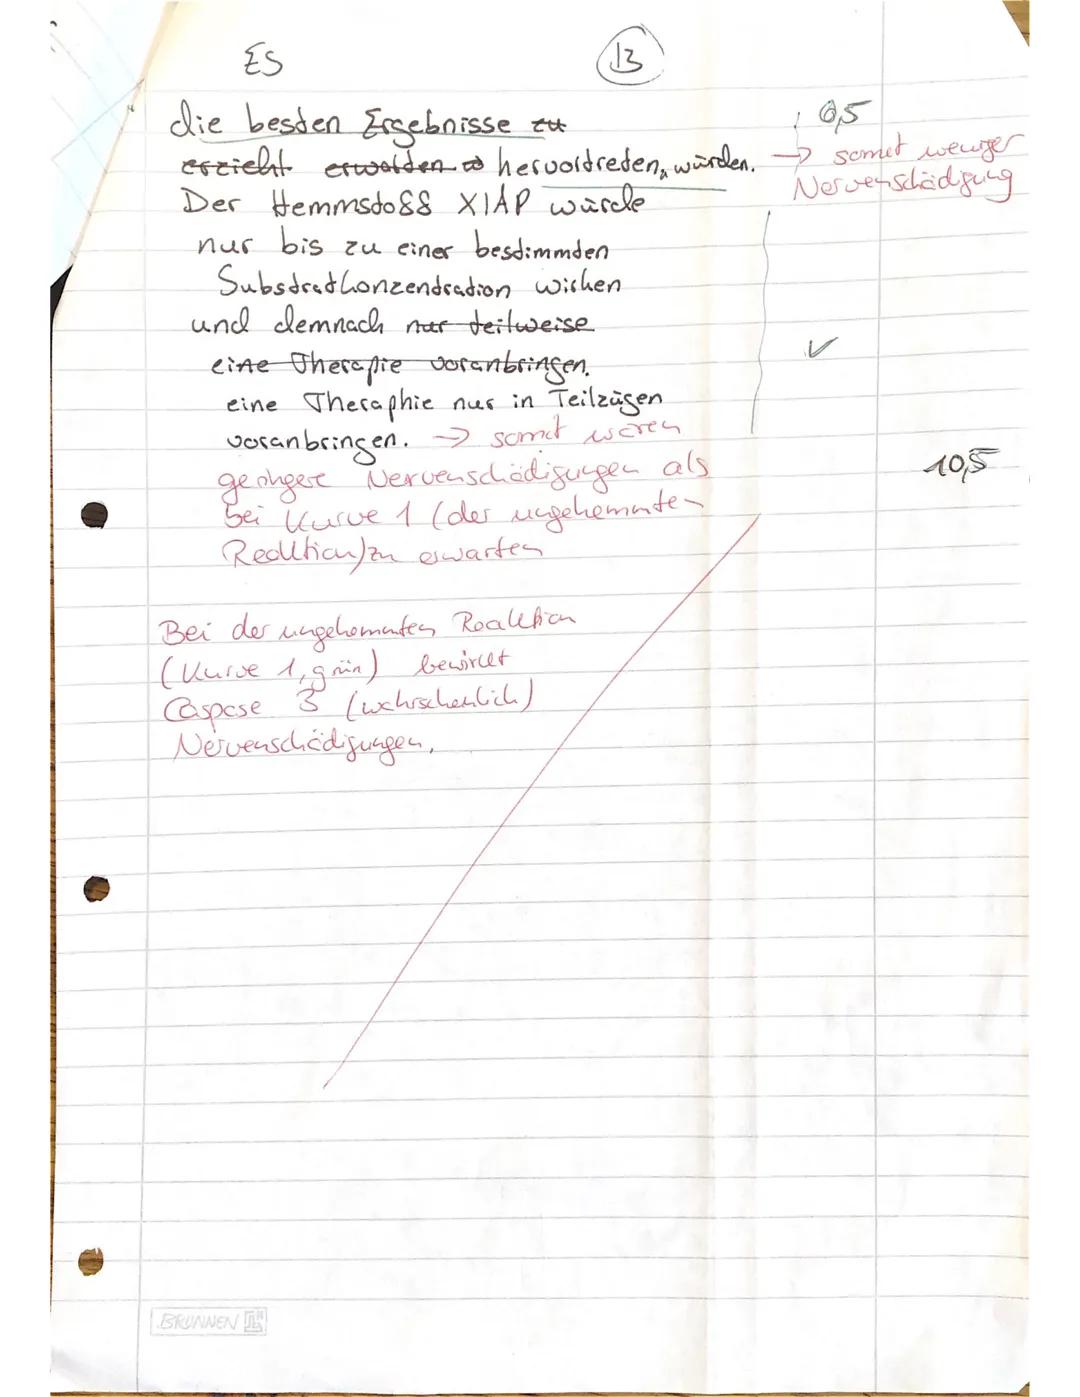 ES
13
die besten Ergebnisse zu
erzieht erwarten zu hervortreten, würden.
0,5
→ somit weniger
Nervenschädigung
Der Hemmstoff XIAP würde
nur bis zu einer bestimmten
Substratkonzentration wirken
und demnach nur teilweise
eine Therapie voranbringen.
✓
eine Theraphie nur in Teilzügen
voranbringen. → somit wären
geringere Nervenschädigungen als
10,5
bei Kurve 1 (der ungehemmten
Reaktion) zu erwarten
Bei der ungehemmten Reaktion
(Kurve 1, grün) bewirkt
Caspase 3 (wahrscheinlich)
Nervenschädigungen.
BRUNNEN